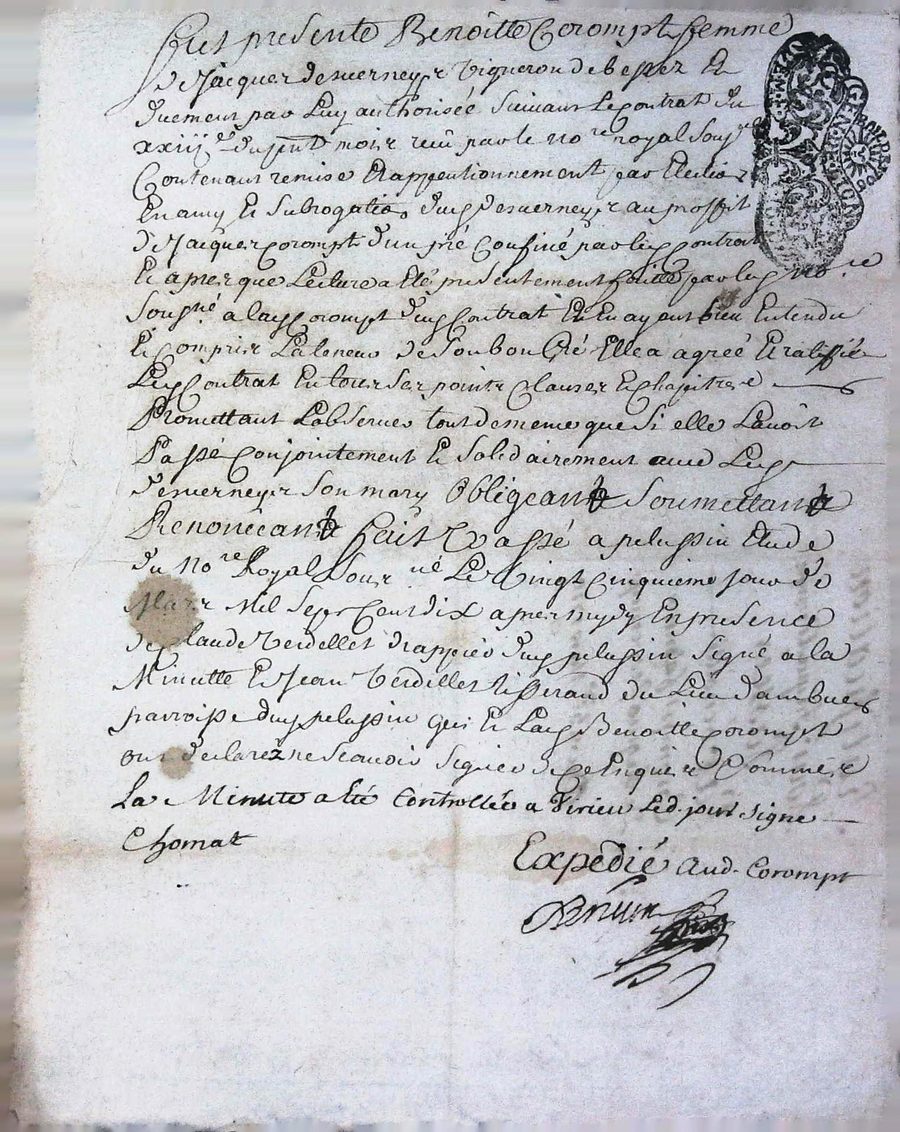 Fut presente Benoitte Corompt femme
de Jacques desverneys vigneron de bessez et
duement par luy authorisée suivant le contrat du
xxiij.e du pnt mois reçu par le no.re royal sousg.é
Contenant remise et appentionnement par Election
En amy et subrogation dud desverneys au proffit
de Jacques corompt d'un pré confiné par led contrat
Et apres que lecture a eté présentement faitte par led no.re
sousg.né a lad Corompt dud Contrat Et En ayant bien Entendu
Et compris la teneur de son bon gré Elle a agreé Et ratiffié
Led Contrat En tous ses points clauses Et chapitres
Promettant Lobserver tout de meme que si elle Lavoit
Passé conjointement Et solidairement aved Led
desverneys son mary Obligeant & Soumettant &
Renoncant & fait & Passé a pelussin Etude
du no.re Royal sous.né Le vingt cinquieme jour de
Mars Mil Sept Cent dix apres mydy En presence
de Claude Verdellet drappier dud pelussin signé a la
Minutte Et Jean Verdellet tisserand du Lieu dambuens
parroisse dud pelussin qui Et Lad Benoitte corompt
ont declarez ne scavoir signer de ce Enquis & sommés
La Minute a Eté Controllée a Virieu led. jour signé
Chomat
Expedié aud. Corompt
GEN. DE LYON